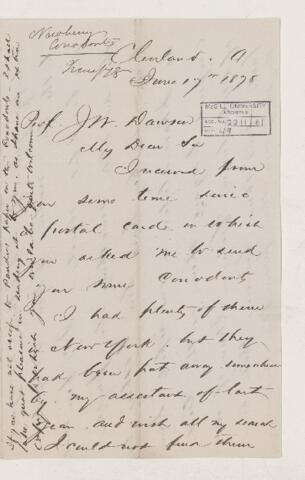 Newberry
Conodonts
June/78
Cleveland. O
June 17th 1878
McGILL UNIVERSITY
ARCHIVES
ACC. NO. 2211/61
REF. 49
Prof J.W. Dawson
My Dear Sir
I received from
you some time since
a postal card in which
you asked me to send
you some Conodonts
I had plenty of them
in New York. but they
had been put away somewhere
by my assistant of last
year. and with all my search
I could not find them
If you have not access to Pander's paper on the Conodonts I shall
take great pleasure in sending it to you